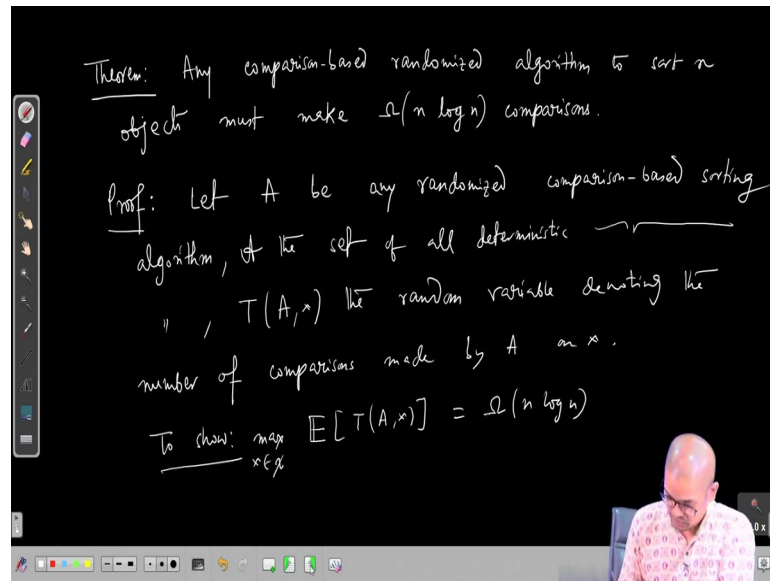 Theorem: Any comparison-based randomized algorithm to sort n
objects must make Ω(n log n) comparisons.
Proof: Let A be any randomized comparison-based sorting
algorithm, 𝒜 the set of all deterministic
" , T(A,x) the random variable denoting the
number of comparisons made by A on x.
To show: max E[T(A,x)] = Ω(n log n)
x∈𝒳